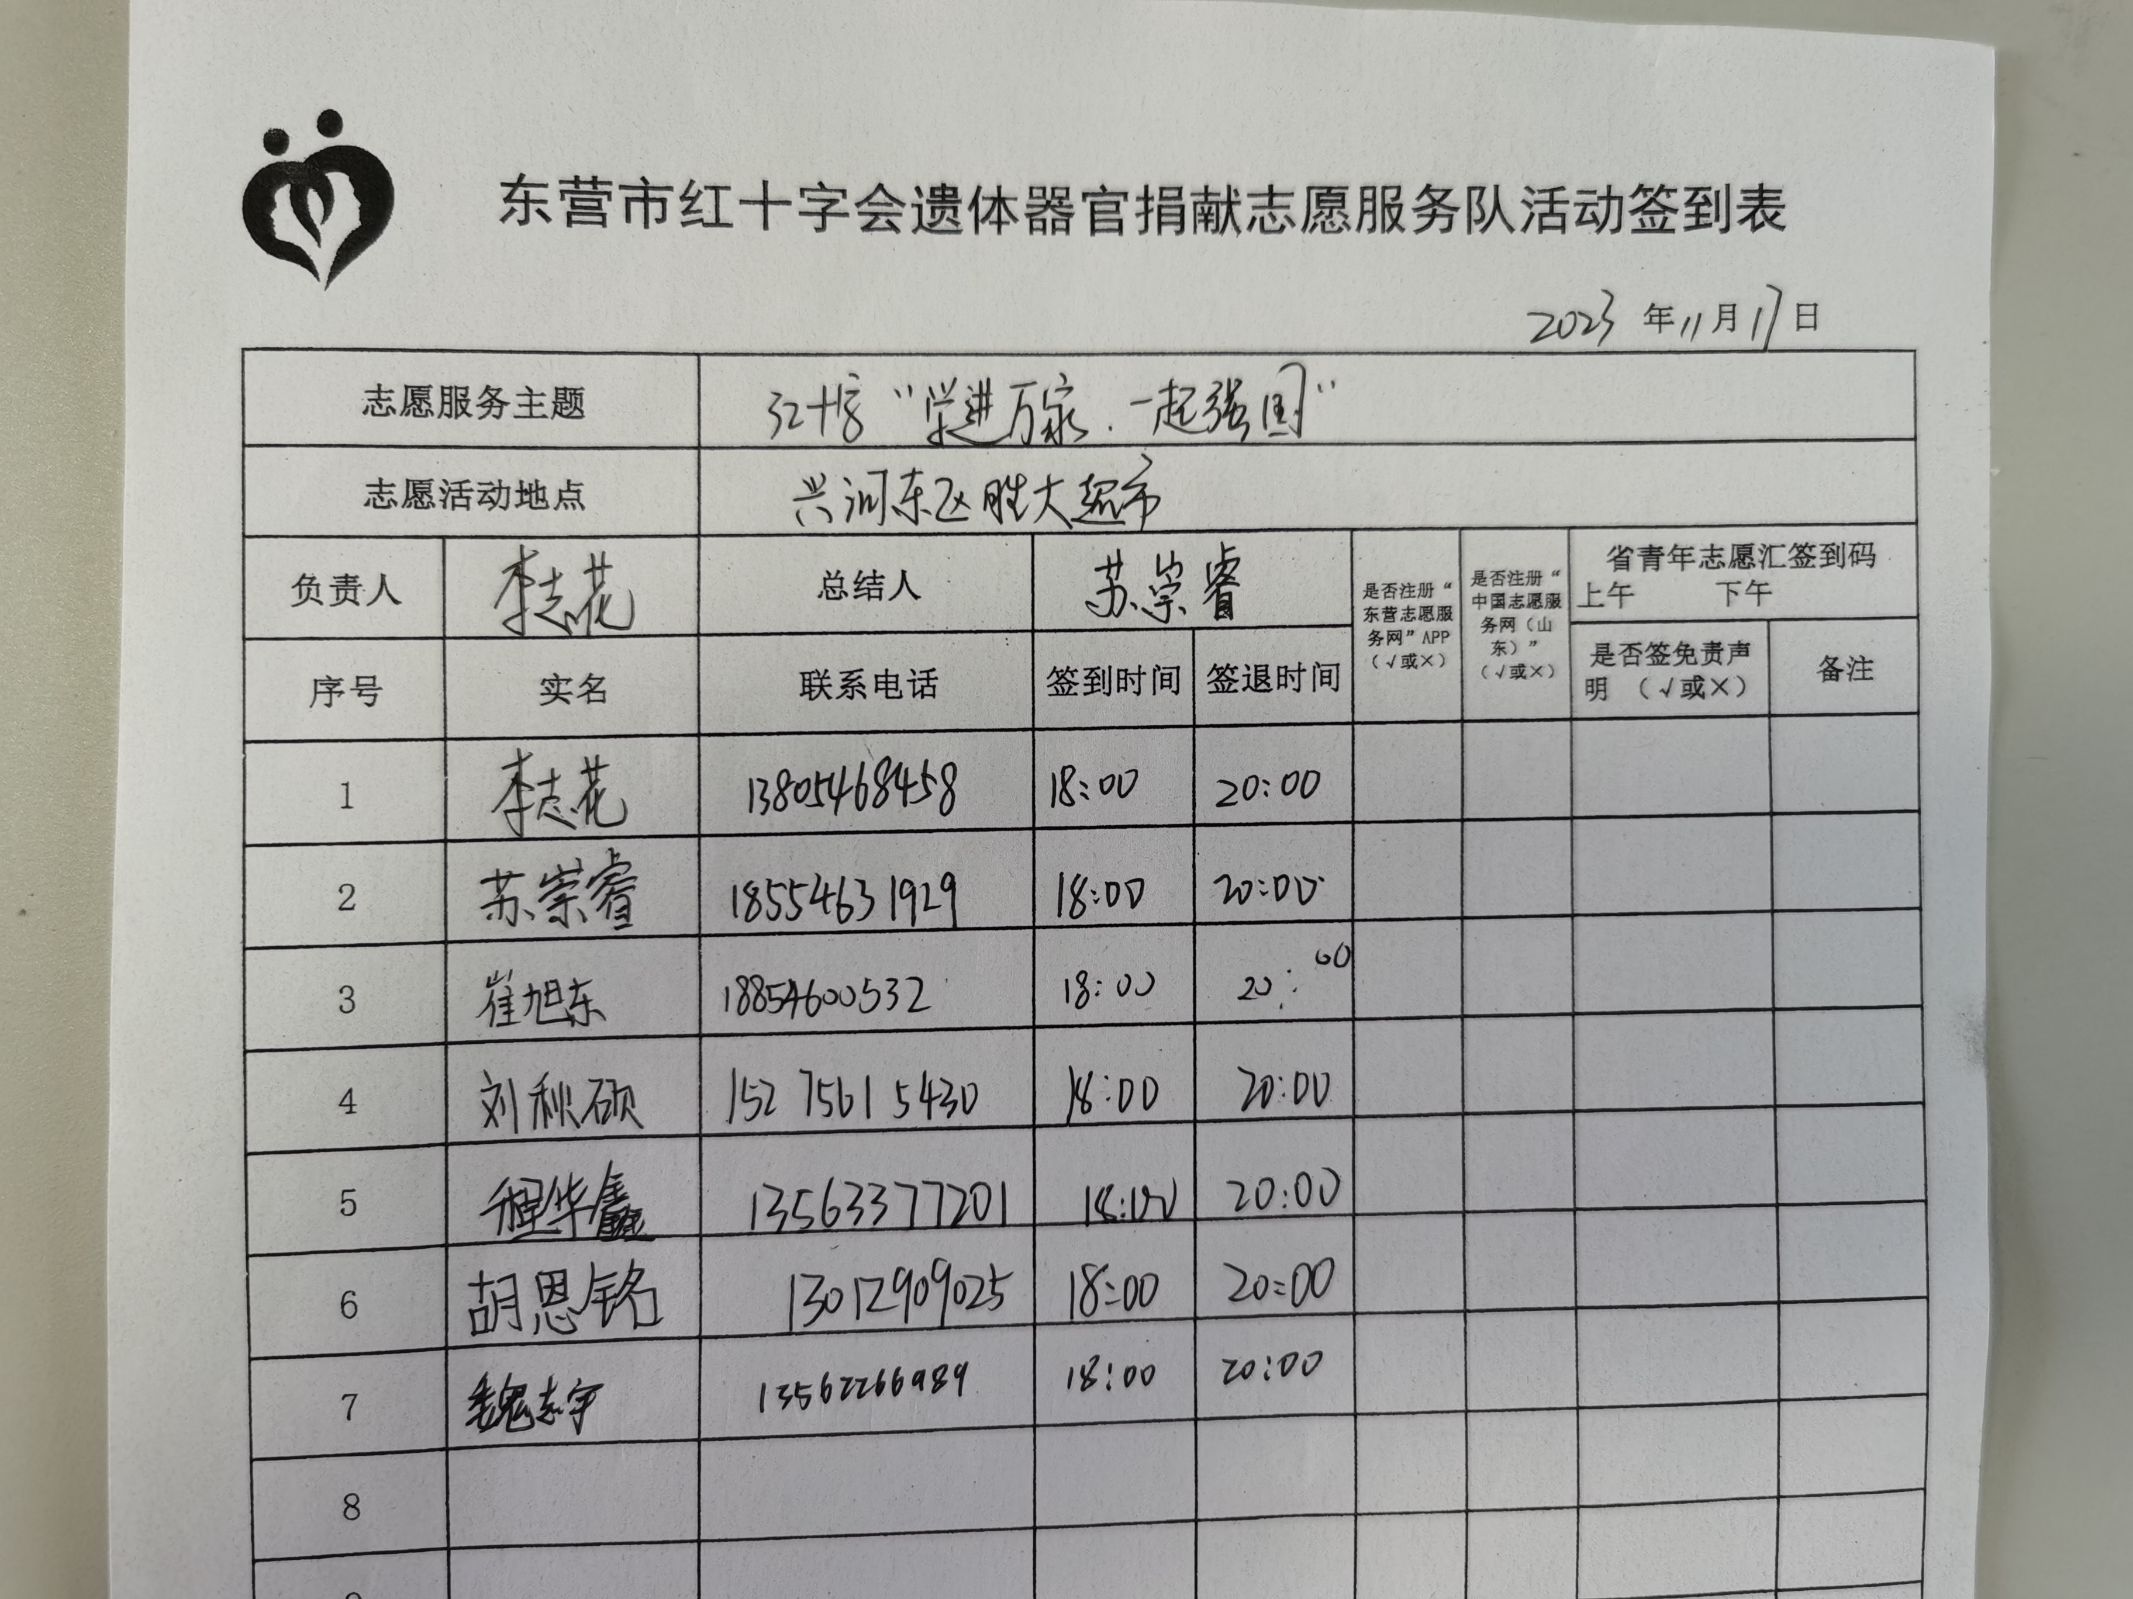 东营市红十字会遗体器官捐献志愿服务队活动签到表
2023 年 11 月 17 日
志愿服务主题 "学进万家.一起强国"
志愿活动地点 兴河东区胜大超市
负责人 李志花 总结人 苏崇睿
是否注册“东营志愿服务网”APP（√或×）
是否注册“中国志愿服务网（山东）”（√或×）
省青年志愿汇签到码
上午 下午
序号 实名 联系电话 签到时间 签退时间 是否签免责声明 （√或×） 备注
1 李志花 13805468458 18:00 20:00
2 苏崇睿 18554631929 18:00 20:00
3 崔旭东 18854600532 18:00 20:00
4 刘秋硕 15275615430 18:00 20:00
5 程华鑫 13563377201 18:00 20:00
6 胡恩铭 13012909025 18:00 20:00
7 魏志宇 13562266989 18:00 20:00
8